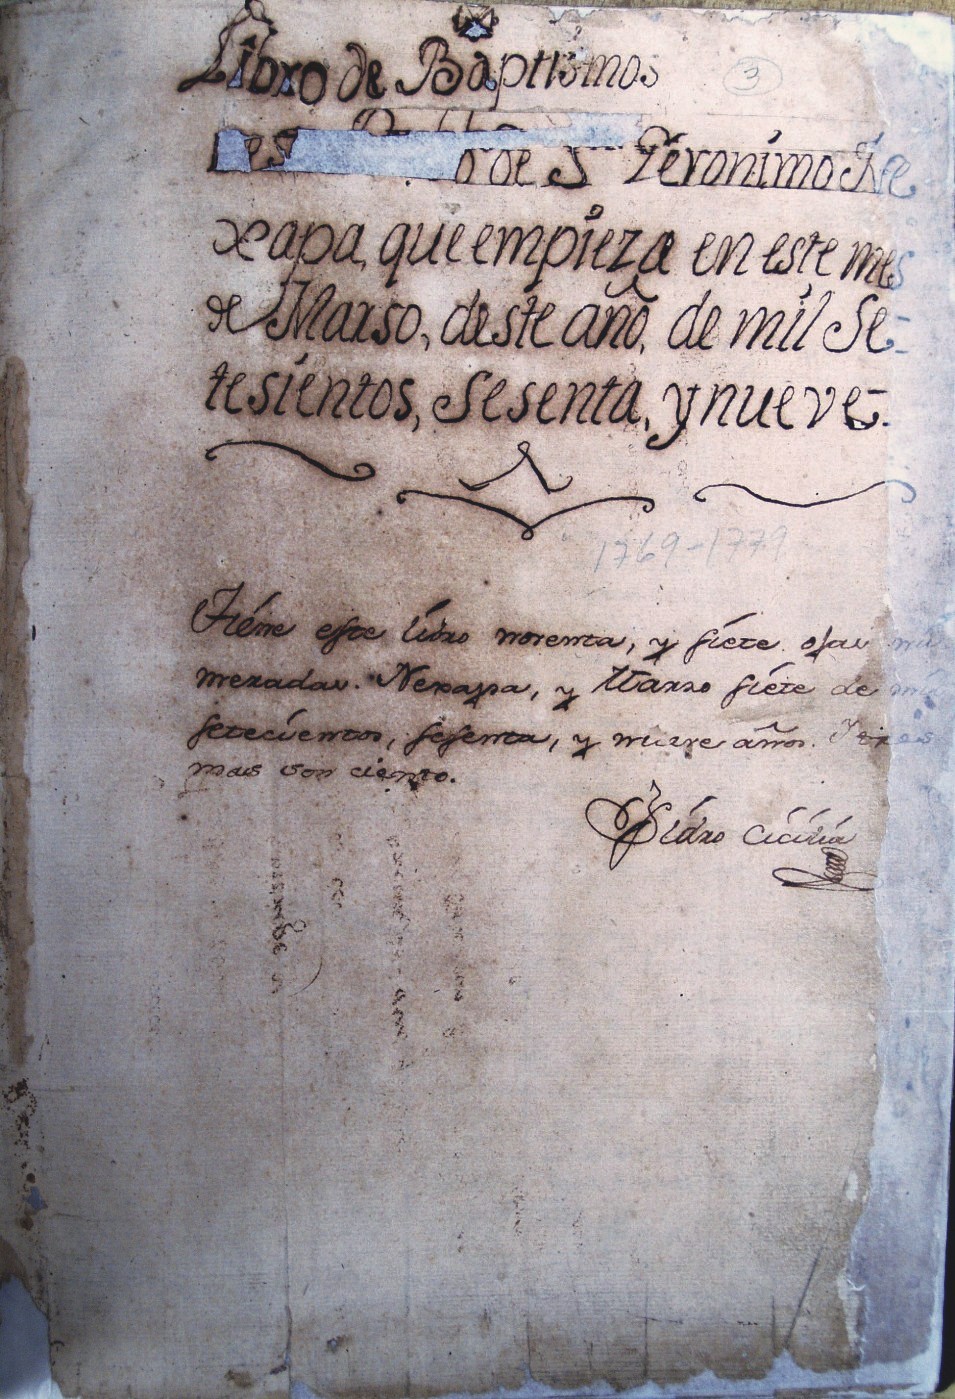 Libro de Baptismos
3
o de S Geronimo Ne
xapa, que empieza en este mes
de Marso, deste año, de mil Se-
tesientos, Sesenta, y nueve-
1769-1779
Tiene este libro noventa, y siete ojas nu
meradas. Nexapa, y Marzo siete de mil
setecientos, sesenta, y nueve años. Y tres
mas son ciento.
Isidro Cicilia